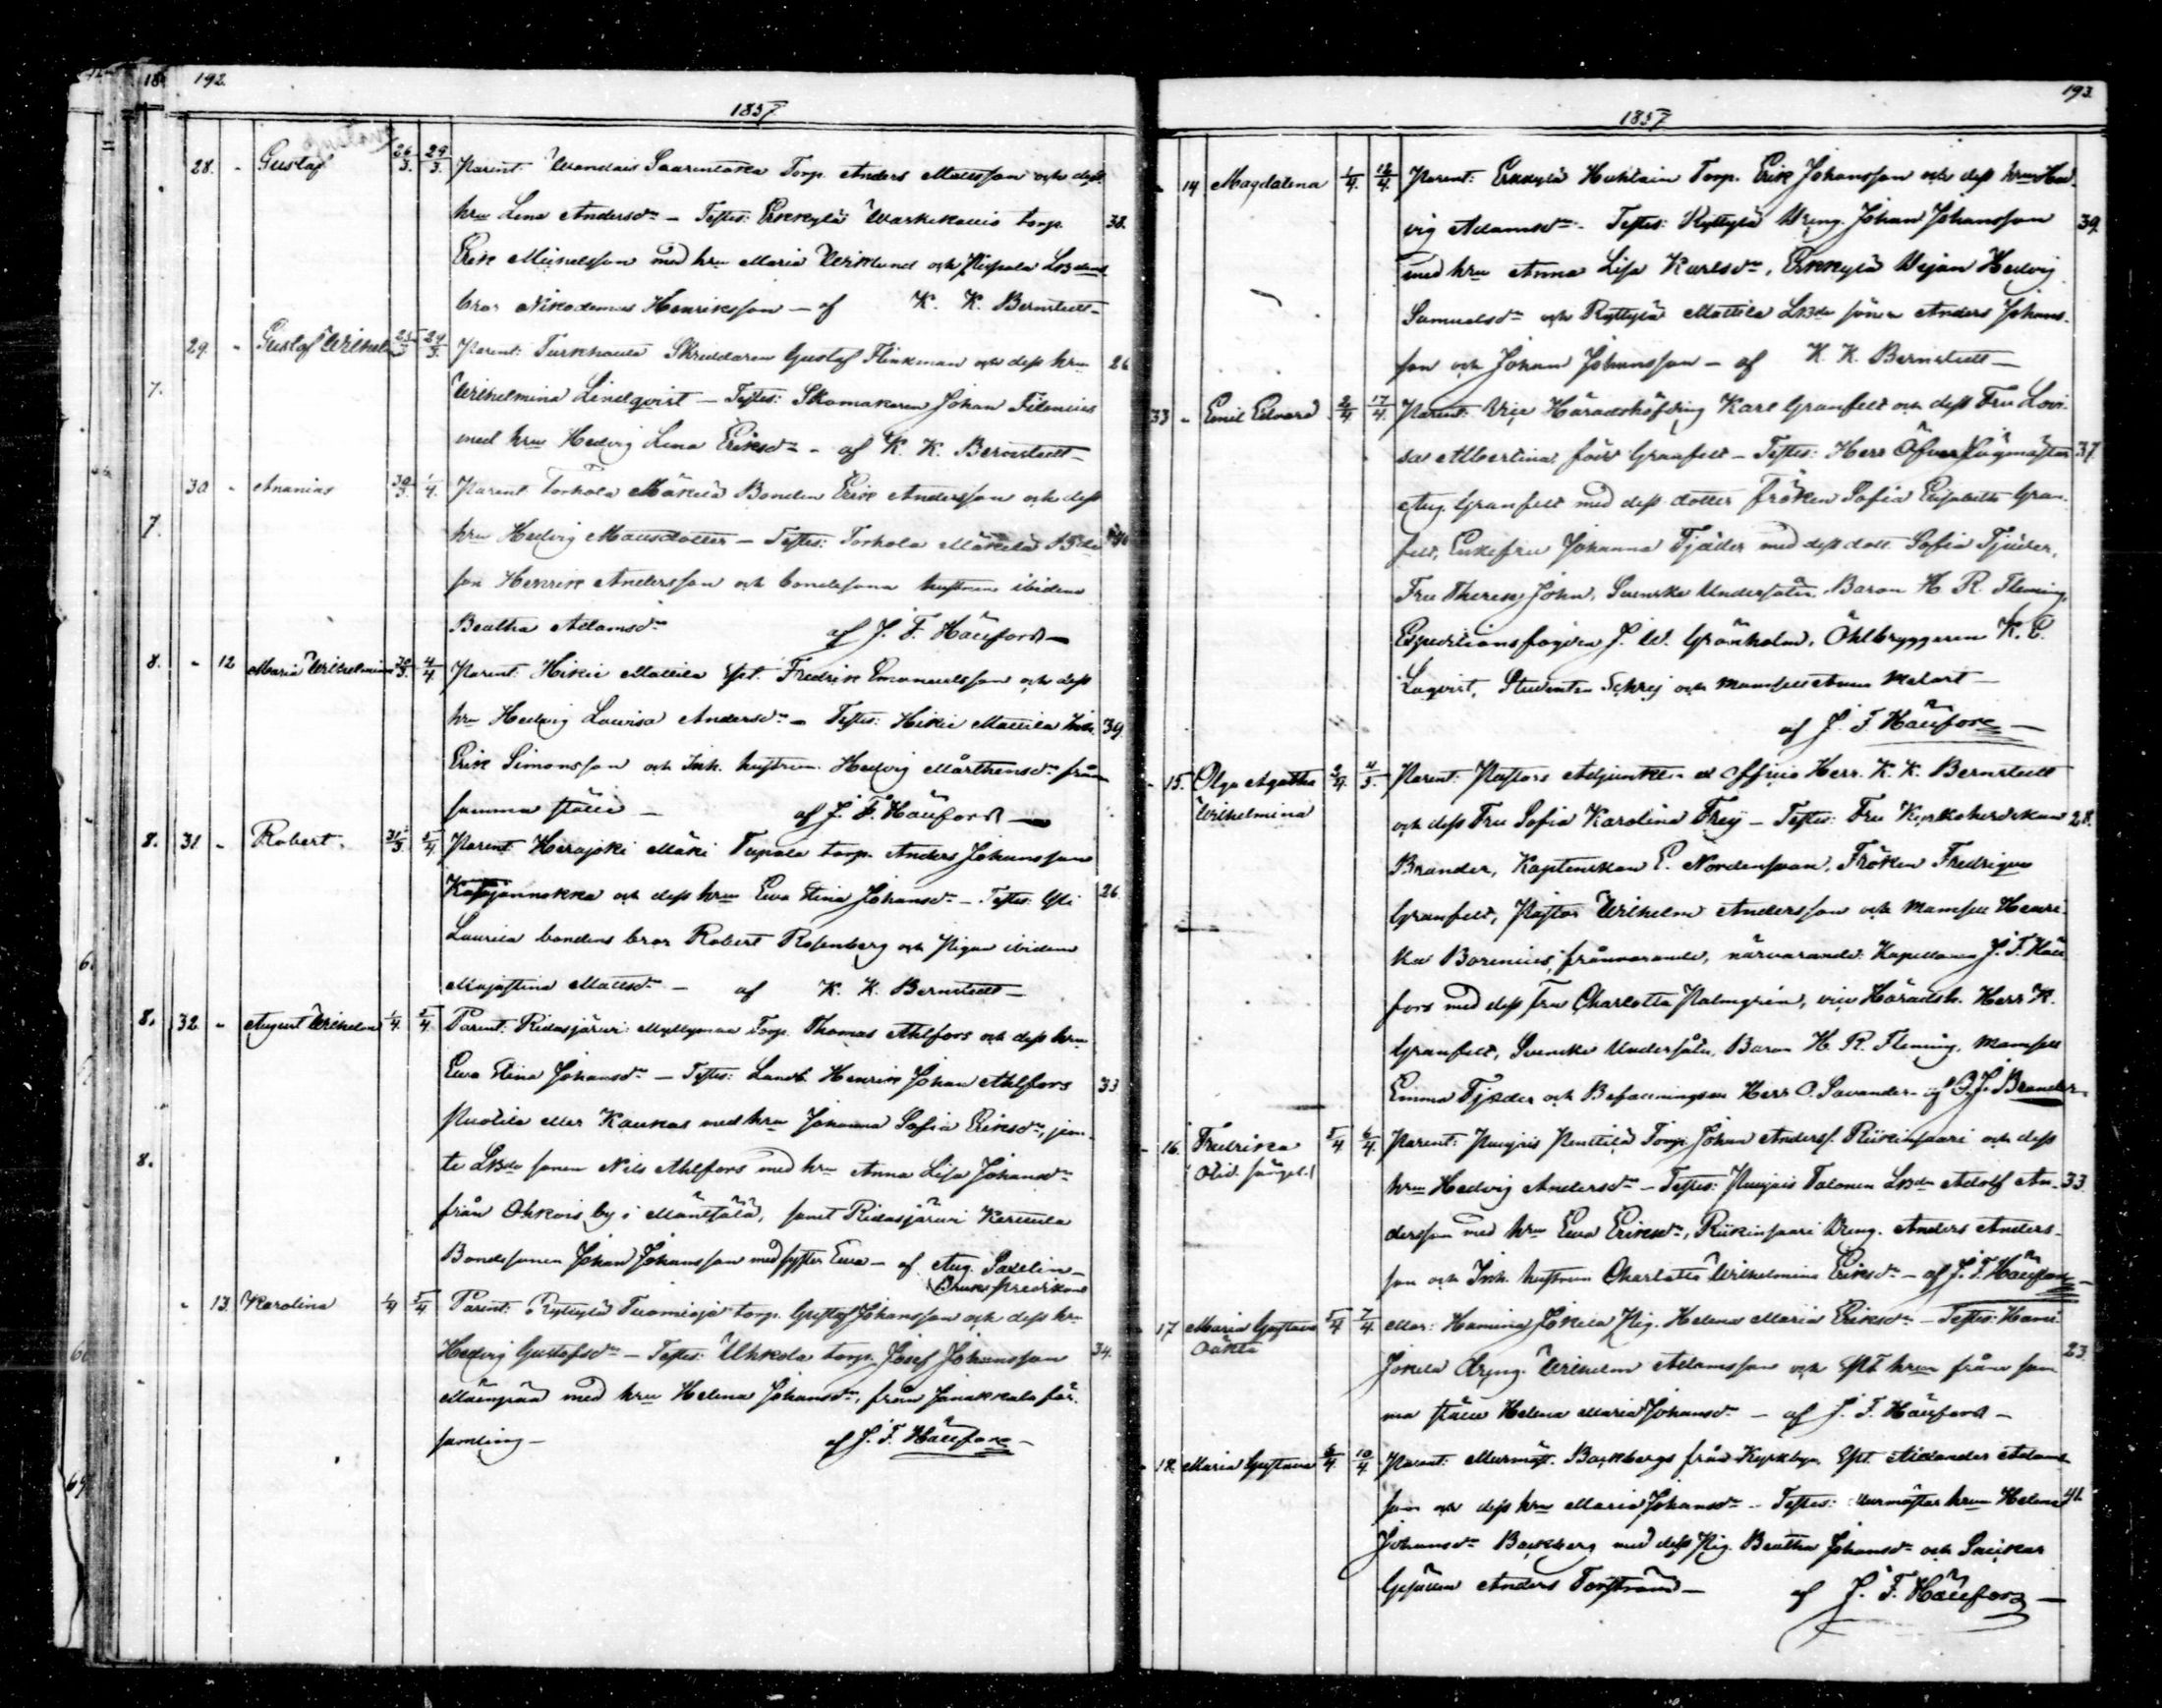 192.
1857
28. - Gustaf 26/3. 29/3. Parent: Wantais Saarenlaka Torp. Anders Matsson och dess
hru Lena Andersdr – Testes: Erkkylä torp. 38.
Erik Michelsson med hru Maria Wiklund och
bror Nikodemus Henriksson – af K. K. Bernstedt –
29. - Gustaf Wilhelm 25/3 29/3. Parent: Turkhauta Skräddaren Gustaf Flinkman och dess hru 26
Wilhelmina Lindqvist – Testes: Skomakaren Johan Filenius
7.
med hru Hedvig Lena Eriksdr – af K. K. Bernstedt –
30 - Ananias 30/3. 1/4. Parent Torhola Mäkilä Bonden Erik Andersson och dess
7.
hru Hedvig Mattsdotter – Testes: Torhola Mäkilä
son Henrik Andersson och bondesona hustrun ibidem
Beatha Adamsdr af J. F. Hällfors –
8. - 12 Maria Wilhelmina 30/3. 4/4 Parent: Hikiä Mattila Fredrik Emanuelsson och dess
hru Hedvig Lovisa Andersdr – Testes: Hikiä Mattila Inh. 39.
Erik Simonsson och Inh. hustrun Hedvig Mårthensdr från
samma ställe – af J. F. Hällfors –
8. 31 - Robert. 31/3 5/4 Parent: Herajoki Mäki Tupala torp. Anders Johansson
och dess hru Eva Stina Johansdr – Testes: 26.
Laurila bondens bror Robert Rosenberg och Pigan ibidem
Majastina Mattsdr – af K. K. Bernstedt –
8. 32. - August Wilhelm 1/4. 5/4. Parent: Ridasjärvi Myllymaa Torp. Thomas Ahlfors och dess hru
Eva Stina Johansdr – Testes: Landb. Henrik Johan Ahlfors 33
Puolila eller Kaukas med hru Johanna Sofia Eriksdr, jem-
8.
te Lbde sonen Nils Ahlfors med hru Anna Lisa Johansdr
från Ohkois by i Mäntsälä, samt Ridasjärvi Kerttula
Bondesonen Johan Johansson med syster Eva – af Aug. Saxelin –
Brukspredikant
- 13. Karolina 1/4 5/4 Parent: Ryttylä Tuomioja torp. Gustaf Johansson och dess hru
Hedvig Gustafsdr – Testes: Uhkola torp. Josef Johansson 34.
med hru Helena Johansdr, från Janakkala för-
samling – af J. F. Hällfors –
193.
1857
14 Magdalena 1/4. 12/4. Parent: Erkkylä Huhtain Torp. Erik Johansson och dess hru Hed-
vig Adamsdr – Testes: Ryttylä Dräng. Johan Johansson 39.
med hru Anna Lisa Karlsdr, Erkkylä Pigan Hedvig
Samuelsdr och Ryttylä Mattila Lbde söner Anders Johans-
son och Johan Johansson – af K. K. Bernstedt –
33 - Emil Edvard 2/4 17/4. Parent: Vice Häradshöfding Karl Granfelt och dess Fru Lovi-
sa Albertina född Granfelt – Testes: Herr Öfverjägmästar 37.
Aug. Granfelt med dess dotter fröken Sofia Elisabeth Gran-
felt, Enkefru Johanna Tjäder med dess dott. Sofia Tjäder,
Fru Therese John, Svenske Undersåten Baron H. R. Fleming,
Expeditionsfogden J. W. Grönholm, Öhlbryggaren K. E.
Studenten och Mamsell Anna
af J. F. Hällfors –
- 15. Olga Agatha 2/4. 4/5. Parent: Pastors Adjunkten Herr K. K. Bernstedt
Wilhelmina
och dess Fru Sofia Karolina Frey – Testes: Fru Kyrkoherdskan 28.
Brander, Kaptenskan E. Nordensvan, Fröken Fredrique
Granfelt, Pastor Wilhelm Andersson och Mamsell Henri-
ka Borenius; frånvarande, närvarande: Kapellanen J. F. Häll-
fors med dess fru Charlotta Palmgrén, vice Häradsh. Herr K.
Granfelt, Svenske Undersåten Baron H. R. Fleming, Mamsell
Emma Tjäder och Befallningsm. Herr O. Savander – af O. J. Brander
- 16. Fredrika 5/4 6/4. Parent: Punjois Penttilä Torp. Johan Anderss. Riikinsaari och dess
hru Hedvig Andersdr – Testes: Punjois Talonen Lbde Adolf An- 33
dersson med hru Eva Eriksdr, Riikinsaari Dräng. Anders Anders-
son och Inh. hustrun Charlotta Wilhelmina Eriksdr – af J. F. Hällfors –
17 Maria Gustava 5/4 7/4. Mor: Hamina Jokela Pig. Helena Maria Eriksdr – Testes: Hami-
oäkta
Jokela Dräng. Wilhelm Adamsson och hru från sam- 23.
ma ställe Helena Maria Johansdr – af J. F. Hällfors –
18. Maria Gustava 6/4. 10/4. Parent: Murmäst. Backbergs från Kyrkbyn Adams-
son och dess hru Maria Johansdr – Testes: Murmästar hrun Helena 41.
Johansdr Backberg med dess Pig. Beatha Johansdr och Snickar
Gesällen Anders Torström – af J. F. Hällfors –